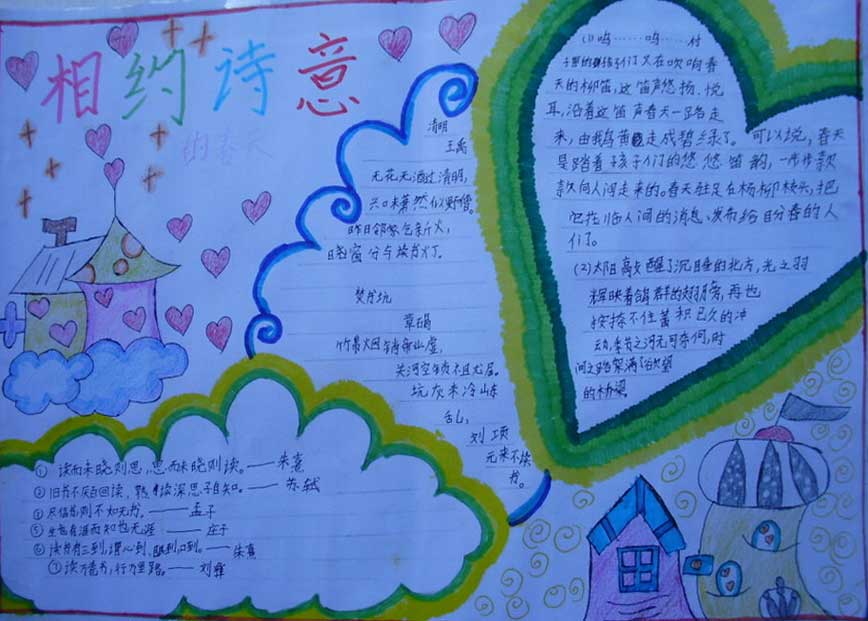 相约诗意
的春天
清明
王禹
无花无酒过清明,
兴口未萧然似野僧。
昨日邻家乞新火,
晓窗分与读书灯。
焚书坑
章碣
竹帛烟销帝业虚,
关河空锁祖龙居。
坑灰未冷山东
乱,
刘项
元来不读
书。
(1)呜……呜……村
子里的孩子们又在吹响春
天的柳笛,这笛声悠扬、悦
耳,沿着这笛声春天一路走
来,由鹅黄走成碧绿了。可以说,春天
是踏着孩子们的悠悠笛韵,一步步款
款向人间走来的。春天驻足在杨柳枝头,把
它莅临人间的消息、发布给盼春的人
们了。
(2)太阳敲醒了沉睡的北方,光之羽
辉映着鸽群的翅膀,再也
按捺不住蓄积已久的冲
动,季节之河无可奈何,时
间之路架满了欲望
的桥梁
①读而未晓则思,思而未晓则读。——朱熹
②旧书不厌百回读,熟读深思子自知。——苏轼
④尽信书则不如无书。——孟子
⑤生也有涯而知也无涯 ——庄子
⑥读书有三到,谓心到、眼到、口到。——朱熹
⑦读万卷书,行万里路。——刘彝